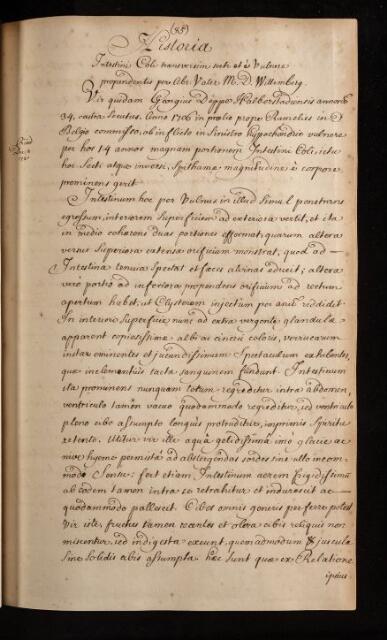 (85)
Historia
Intestini Coli transversim secti et è Vulnere
propendentis per Abr. Vater M. D. Wittemberg.
Vir quidam Georgius Deppe Halberstadiensis annorū
34. castra Secutus. Anno 1706 in prœlio prope Ramelies in
Belgio commisso, ob inflicto in Sinistro hypochondrio vulnere
per hos 14 annos magnam portionem Intestini Coli, ictu
hoc Secti atque inversi, Spithamæ magnitudine è corpore
prominens gerit.
Intestinum hoc per Vulnus in illud Simul penetrans
egressum, interiorem Superficiem ad exteriora vertit, et ita
in medio cohærens duas portiones efformat, quarum altera
versus Superiora extensa orificium monstrat, quod ad
Intestina tenuia Spectat et fæces alvinas educit; altera
vero portio ad inferiora propendens orificium ad rectum
apertum habet, ut Clysterem injectum per anū reddidit.
In interiori Superficie nunc ad extra vergente, glandulæ
apparent copiosissimæ albi ac cinerei coloris, verrucarum
instar eminentes et jucundissimum Spectaculum exhibentes,
quæ inclementius tacta sanguinem fundunt. Intestinum
ita prominens nunquam totum regreditur intra abdomen,
ventriculo tamen vacuo quodammodo regreditur, sed ventriculo
pleno cibo assumpto longius protruditur, imprimis Spiritu
retento. Utitur vir ille aquâ gelidissimâ imo glacie ac
nive hyeme permista ad abstergendas sordes sine ullo incom-
modo Sensu: fert etiam Intestinum aerem frigidissimū
ab eodem tamen intra se retrahitur et indurescit ac
quodammodo pallescit. Cibos omnis generis perferre potest
Vir iste, fructus tamen recentes et olera cibis reliquis non
miscentur, sed indigesta exeunt, quemadmodum & juscula
sine Solidis cibis assumpta. hæc sunt quæ ex Relatione
ipsius